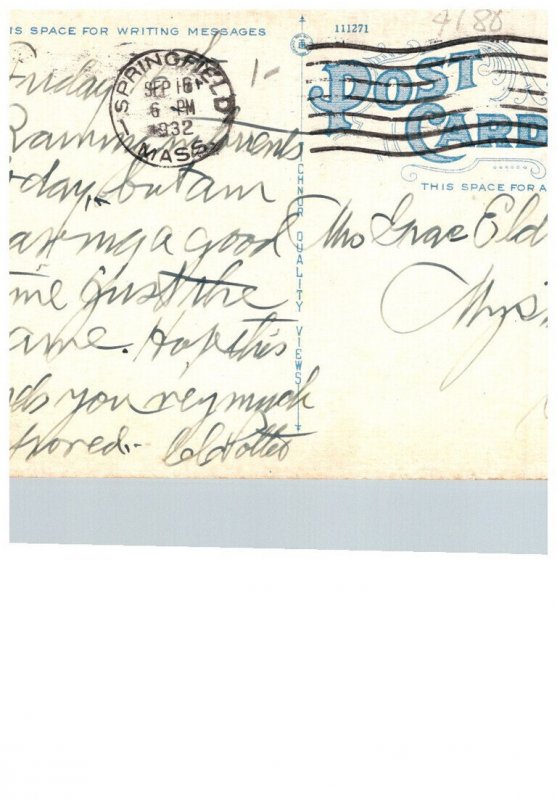 IS SPACE FOR WRITING MESSAGES
111271
4180
SPRINGFIELD
SEP 16
6 PM
1932
MASS.
POST
CARD
THIS SPACE FOR A
CHNOR QUALITY VIEWS
Friday
day, but am
aving a good
me just the
ame. Hope this
ds you very much
Mrs Grace Eld